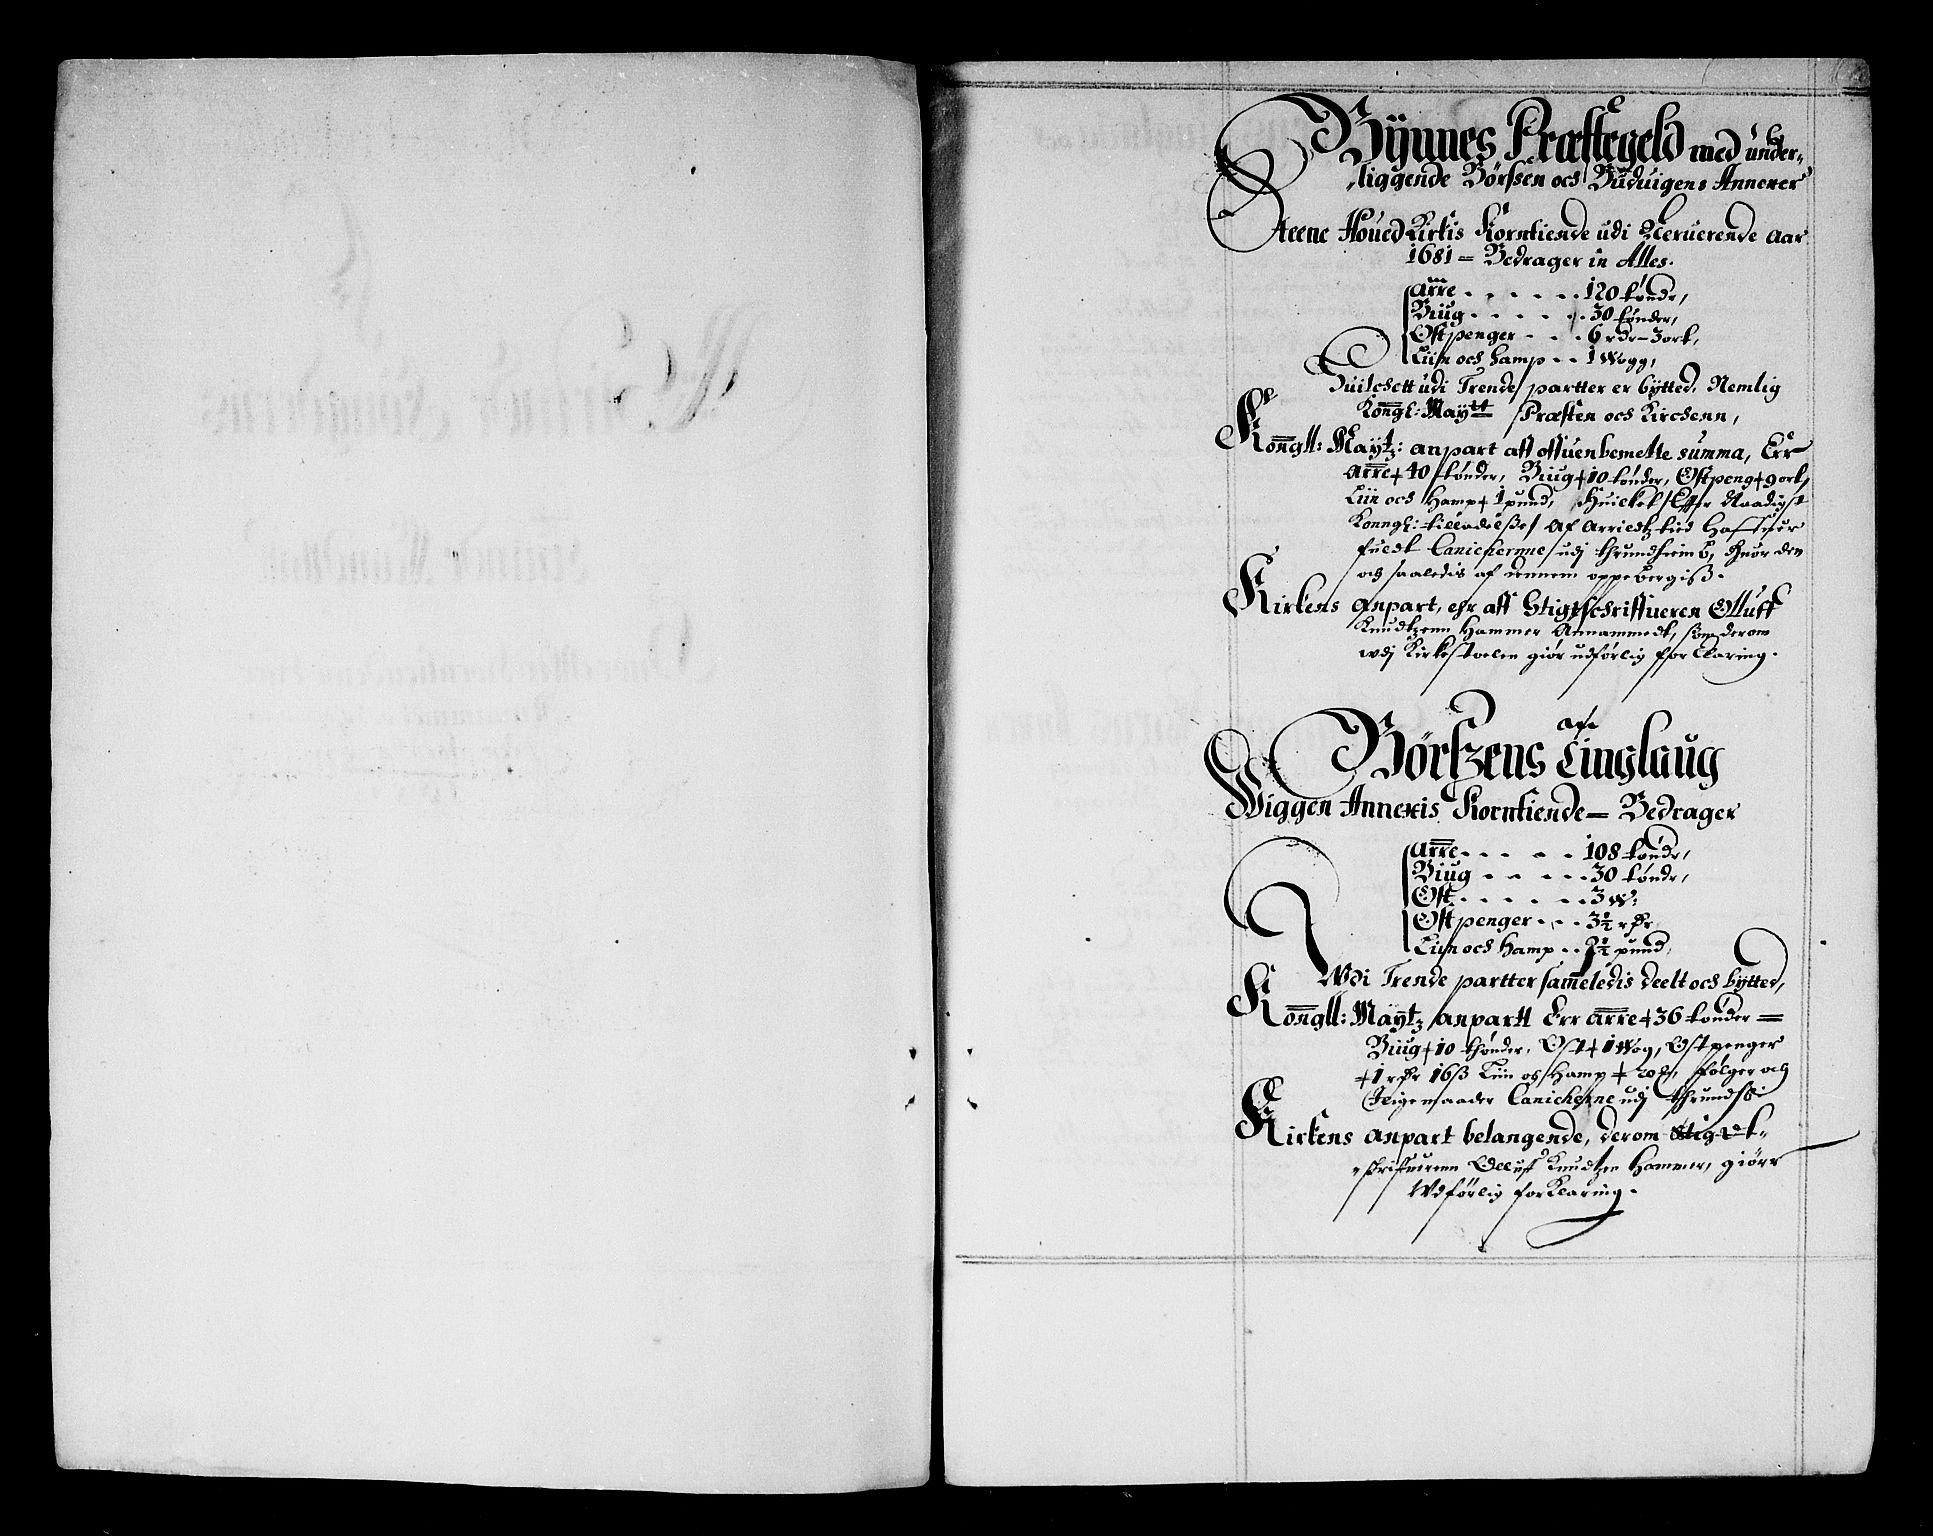 Bÿnnes Præstegeld med under-
liggende Börszen och Buduigens Annexer
Steene HouedKirkis Korntiende udi Neruerende aar
1681 = Bedrager in Alles.
Arre . . . . . . 120 tønde,
Biug . . . . . . 30 tønder,
Ostpenger . . . 6 rdr - 3 ort,
Liin och hamp . . 1 Wogg,
Huilchett udi Trende partter er bÿtted, Nemlig
Kongl: Maytt Præsten och Kirchenn,
Kongll: Maytz: anpart aff offuenbemelte summa, Err
Arre + 40 tønder, Biug + 10 tønder, Ostpeng + 9 ort,
Liin och Hamp + 1 pund, Huilket Effter Naadigst
Konngl: tilladelsse
fuldt Canicherne udj thrundheimb, huor den
och saaledis af dennem oppebergiß.
Kirkens anpart, ehr aff Stigtschriffueren Olluff
Knudtzenn Hammer Annammedt, som derom
wdj Kirkestoelen giør udførlig forklaring.
Börszens Tinglaug
Wiggen Annexis Korntiende = Bedrager
Arre . . . . . 108 tønde,
Biug . . . . . 30 tønde,
Ost . . . . . . 3 W:
Ostpenger . . . 3½ rdr
Liin och hamp . . 2½ pund,
Wdi Trende partter sammeledis deelt och bÿtted,
Kongll: Maÿtz anpartt Err Arre + 36 tönder =
Biug + 10 thønder, Ost + 1 Wog, Ostpenger
+ 1 rdr 16 ß Liin og Hamp + 20 , følger och
ligemaader Canicherne udj thrundh:
Kirkens anpart belangende, derom Stigdt-
schrifuerenn Olluff Knudtzen Hammer, giörr
Wdførlig forklaring.